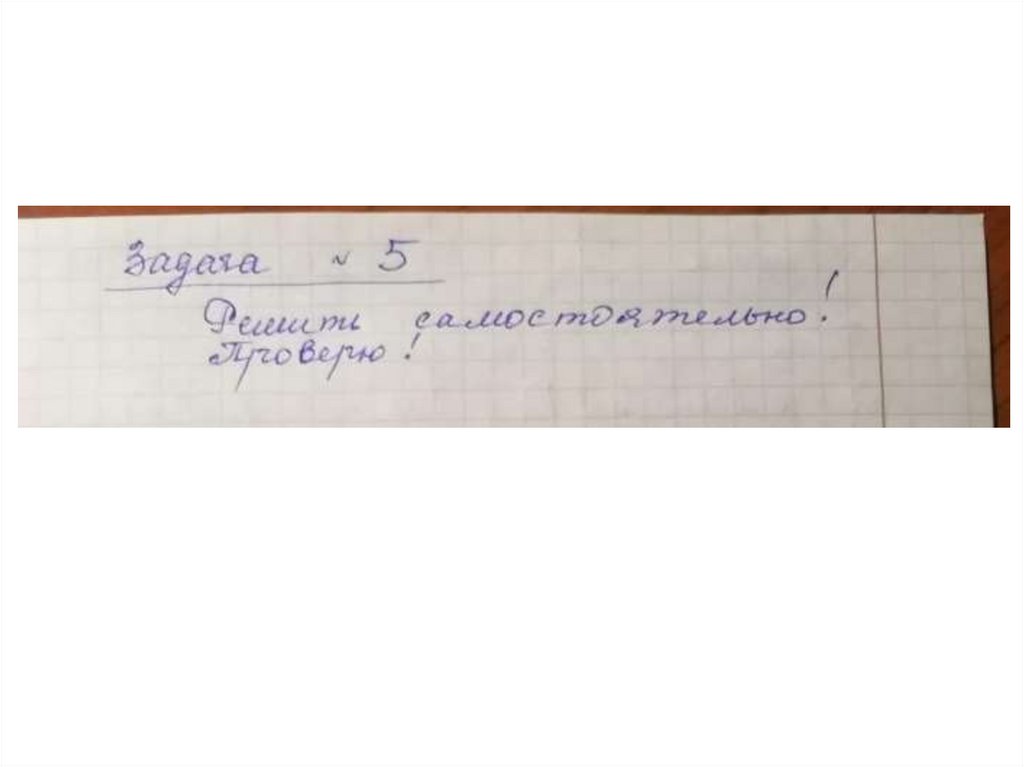 Задача № 5
Решить самостоятельно!
Проверю!